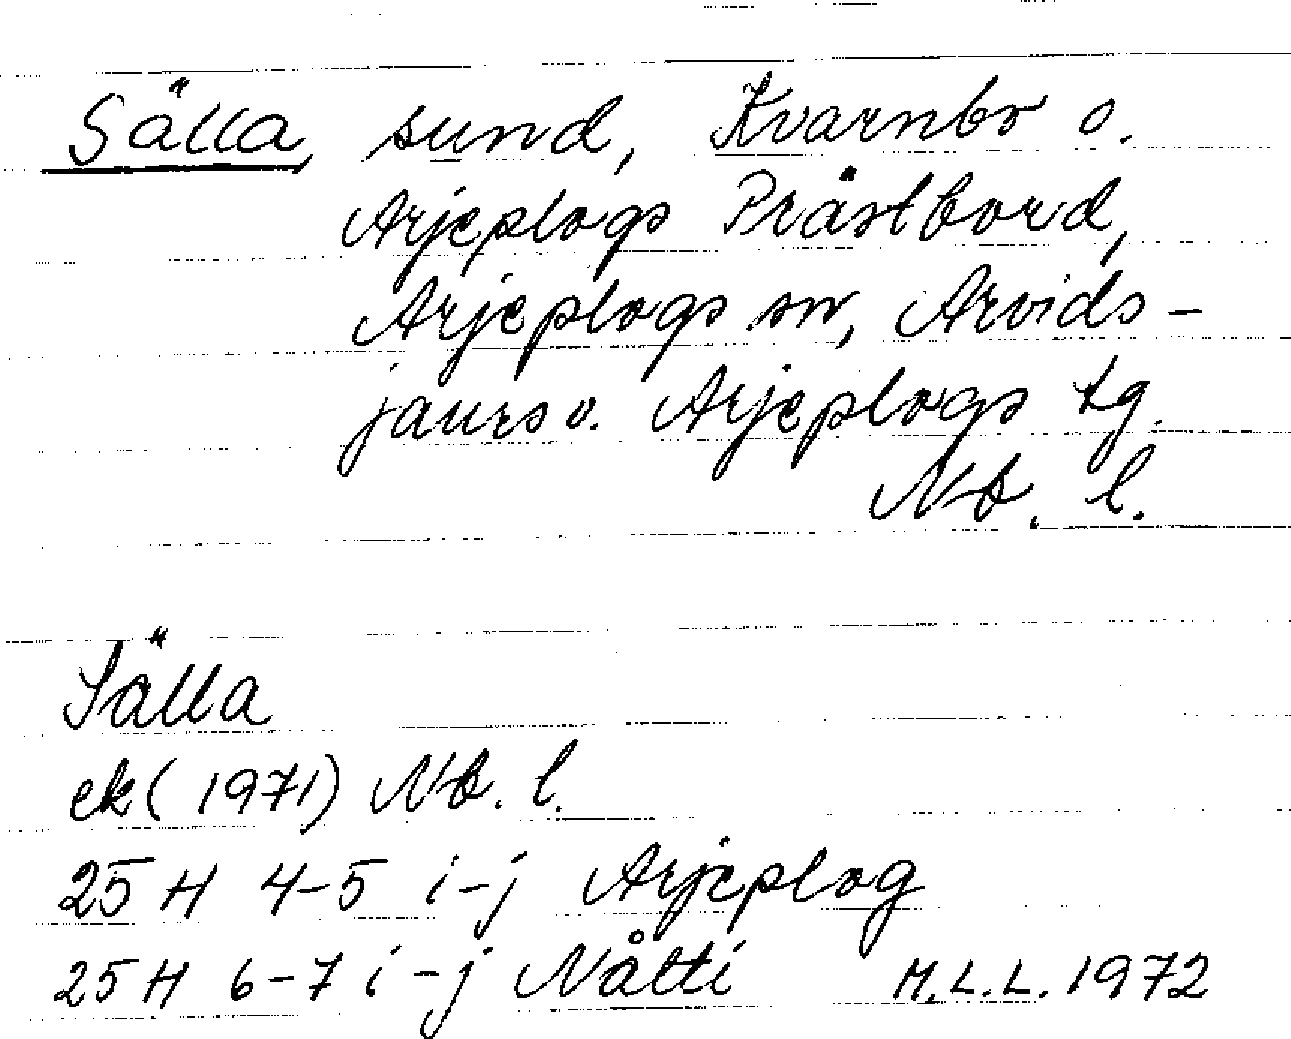 Sälla, sund, Kvarnbo o.
Arjeplogs Prästbord,
Arjeplogs sn, Arvids-
jaurs o. Arjeplogs tg.
Nb. l.
Sälla
ek (1971) Nb. l.
25 H 4-5 i-j Arjeplog
25 H 6-7 i-j Nåtti M.L.L. 1972